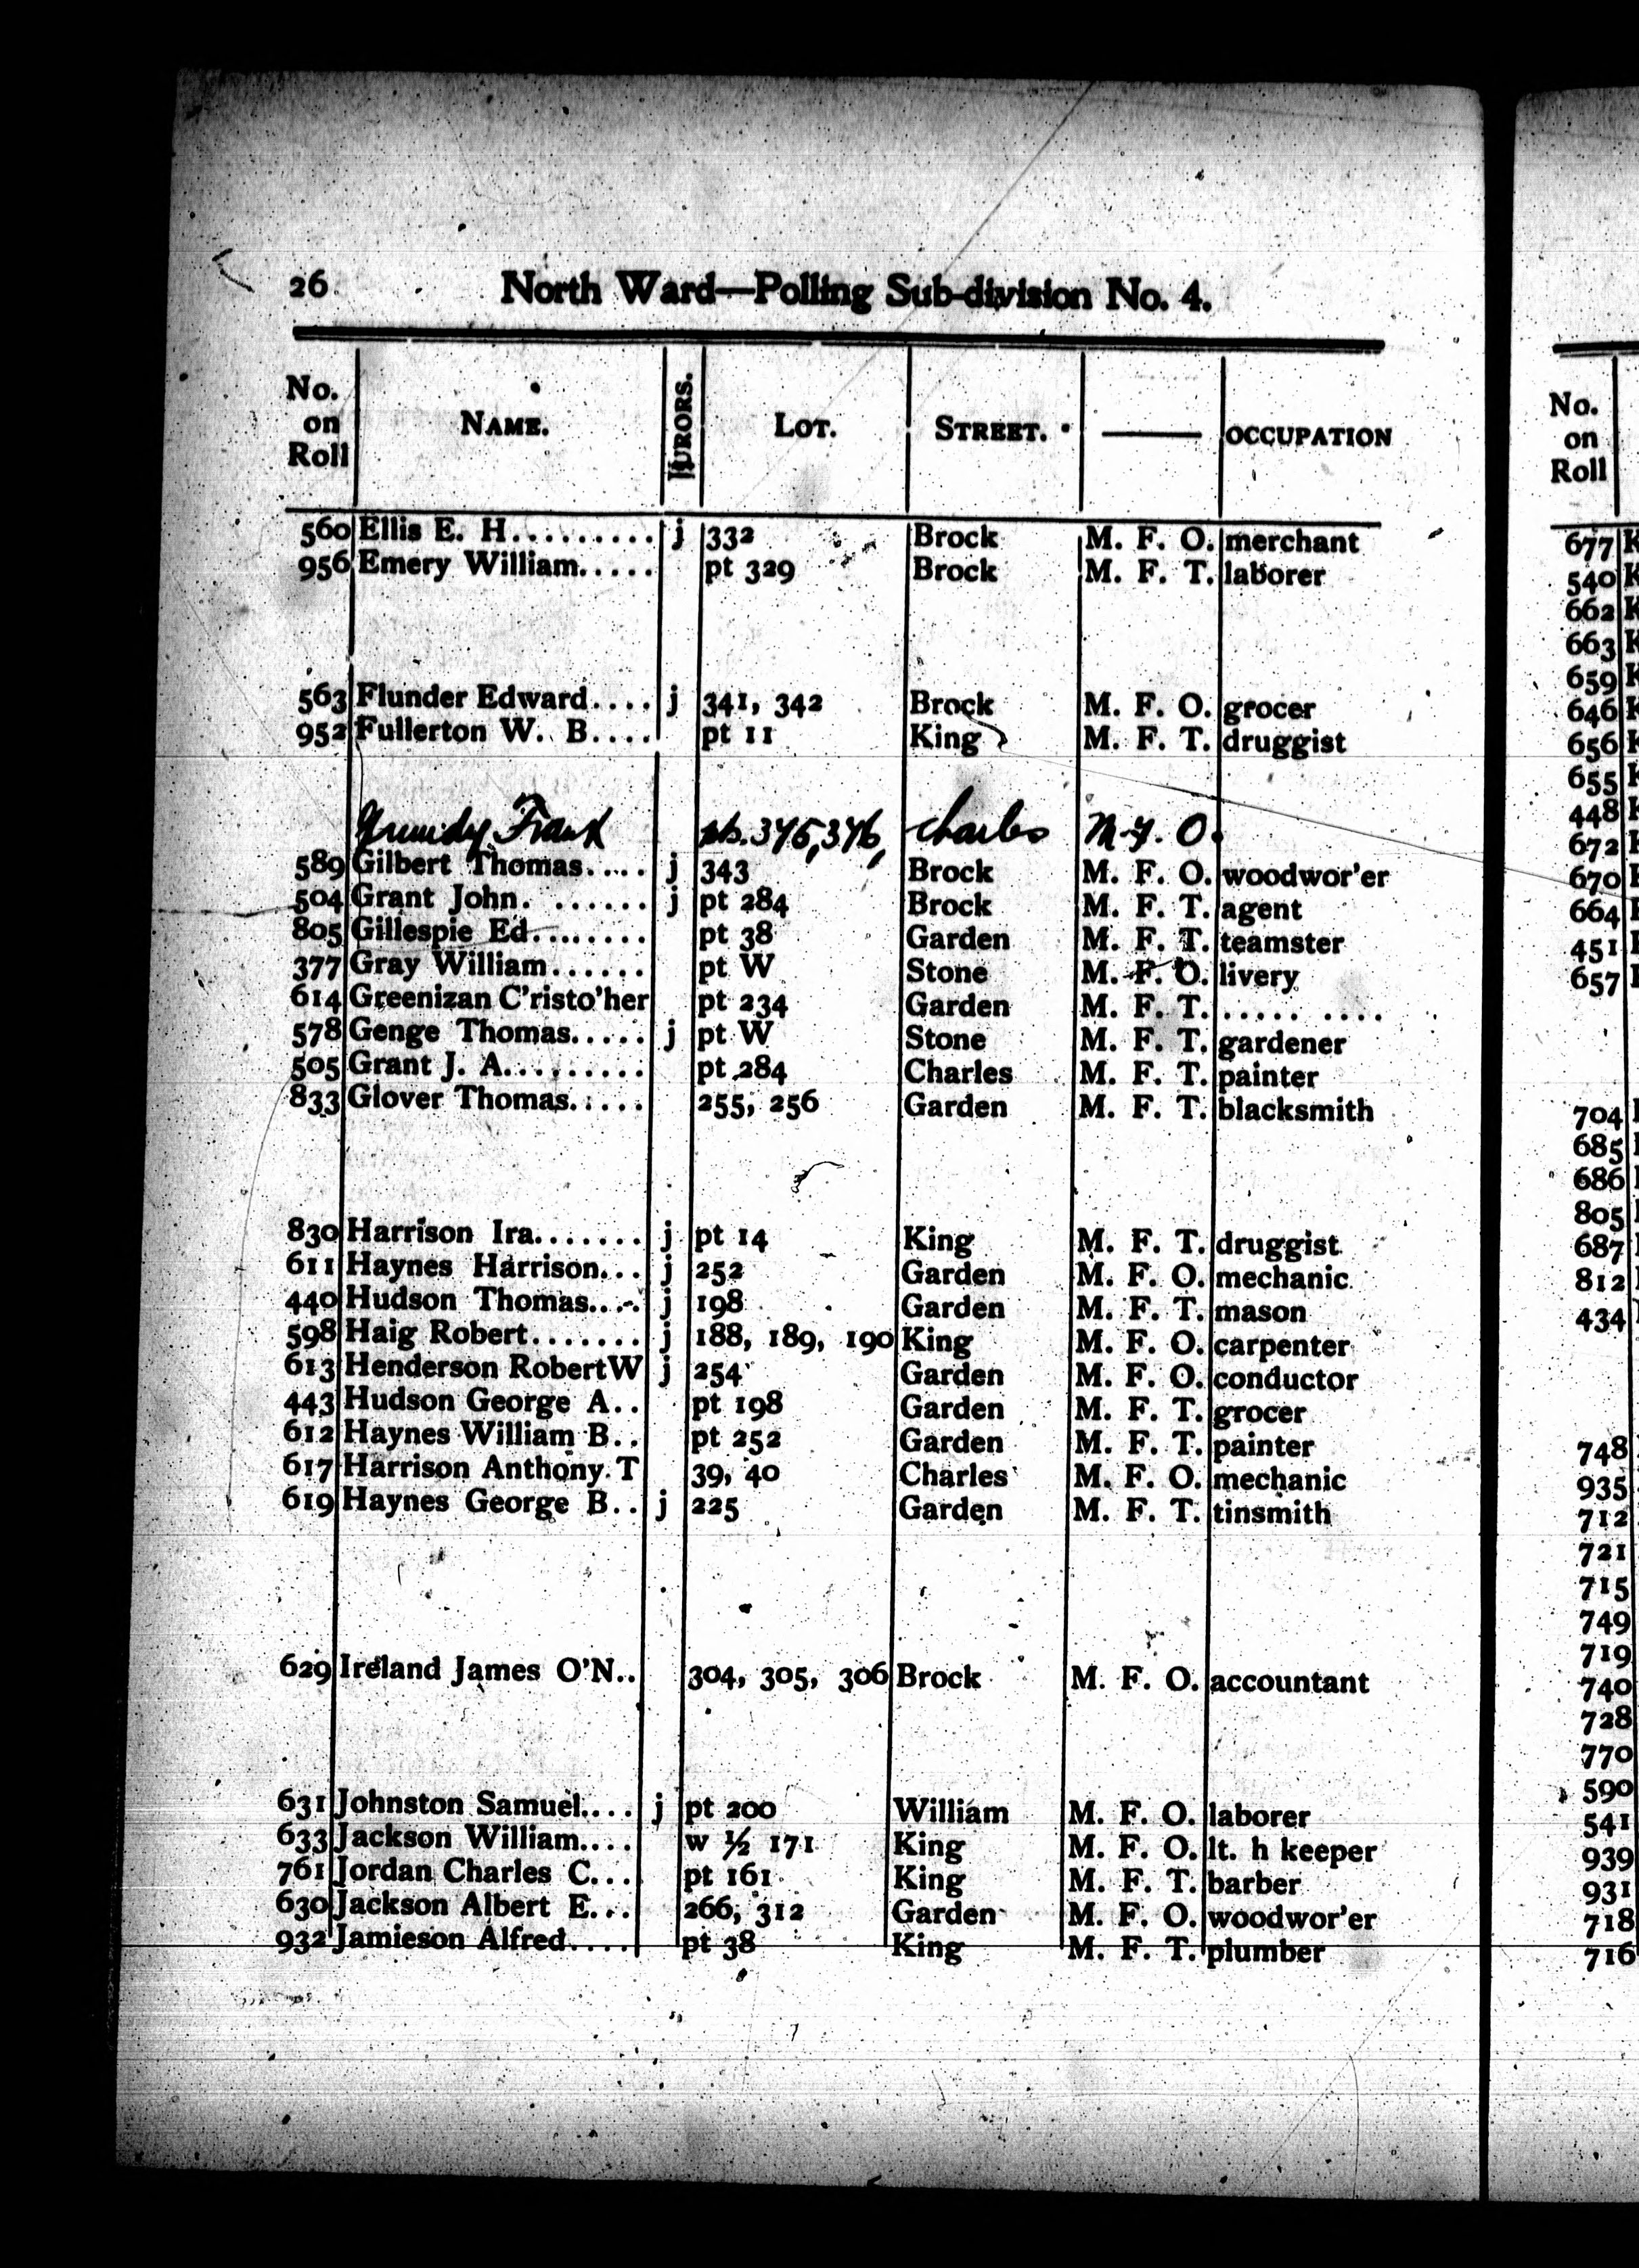 26 North Ward—Polling Sub-division No. 4.
No. on Roll NAME. JURORS. LOT. STREET. —— OCCUPATION
560 Ellis E. H......... j 332 Brock M. F. O. merchant
956 Emery William..... pt 329 Brock M. F. T. laborer
563 Flunder Edward.... j 341, 342 Brock M. F. O. grocer
952 Fullerton W. B.... pt 11 King M. F. T. druggist
Grundy Frank pts. 345, 346, Charles M. F. O.
589 Gilbert Thomas..... j 343 Brock M. F. O. woodwor'er
504 Grant John. ....... j pt 284 Brock M. F. T. agent
805 Gillespie Ed........ pt 38 Garden M. F. T. teamster
377 Gray William...... pt W Stone M. F. O. livery
614 Greenizan C'risto'her pt 234 Garden M. F. T. ..... ....
578 Genge Thomas..... j pt W Stone M. F. T. gardener
505 Grant J. A......... pt 284 Charles M. F. T. painter
833 Glover Thomas..... 255, 256 Garden M. F. T. blacksmith
830 Harrison Ira....... j pt 14 King M. F. T. druggist
611 Haynes Harrison... j 252 Garden M. F. O. mechanic
440 Hudson Thomas.... j 198 Garden M. F. T. mason
598 Haig Robert....... j 188, 189, 190 King M. F. O. carpenter
613 Henderson Robert W j 254 Garden M. F. O. conductor
443 Hudson George A.. pt 198 Garden M. F. T. grocer
612 Haynes William B.. pt 252 Garden M. F. T. painter
617 Harrison Anthony T 39, 40 Charles M. F. O. mechanic
619 Haynes George B.. j 225 Garden M. F. T. tinsmith
629 Ireland James O'N.. 304, 305, 306 Brock M. F. O. accountant
631 Johnston Samuel.... j pt 200 William M. F. O. laborer
633 Jackson William.... w ½ 171 King M. F. O. lt. h keeper
761 Jordan Charles C... pt 161 King M. F. T. barber
630 Jackson Albert E... 266, 312 Garden M. F. O. woodwor'er
932 Jamieson Alfred.... pt 38 King M. F. T. plumber
No. on Roll
677 K
540 K
662 K
663 K
659 K
646 K
656 K
655 K
448 K
672
670
664
451
657
704
685
686
805
687
812
434
748
935
712
721
715
749
719
740
728
770
590
541
939
931
718
716